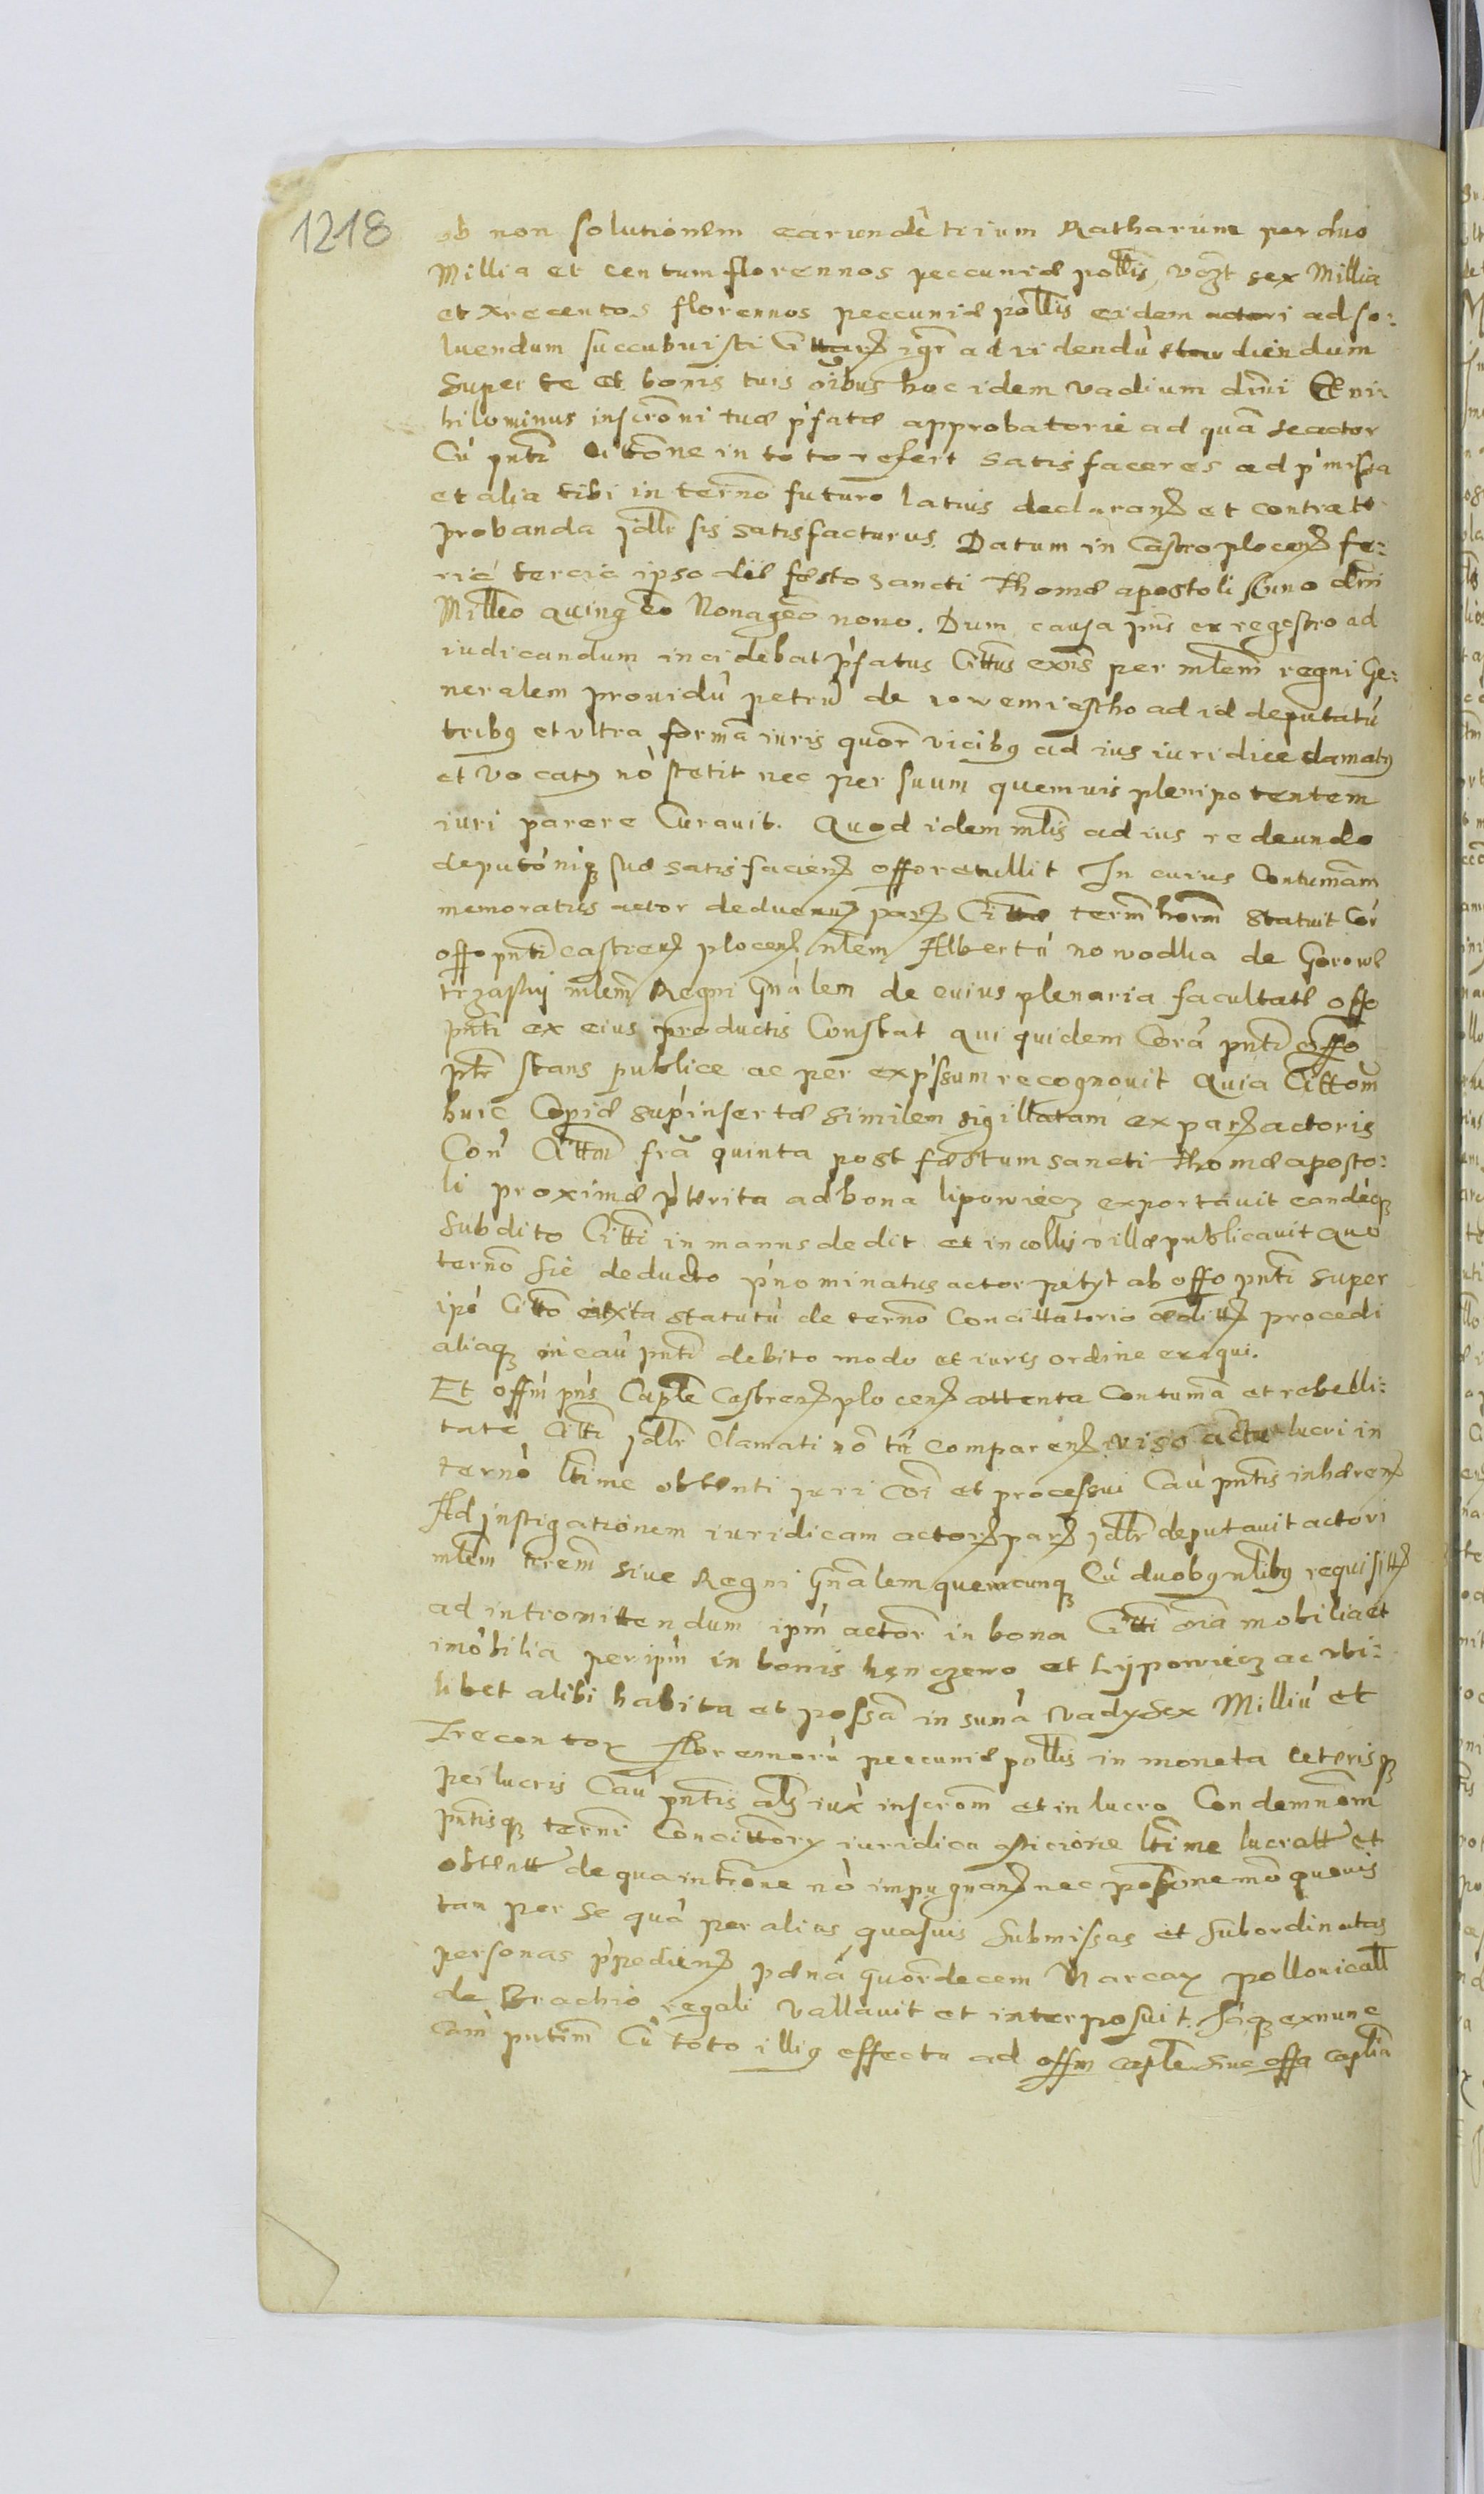 1218
ob non solutionem earundē trium Ratharum per duo
Millia et centum florennos peccuniæ pollis, vzt sex Millia
et Trecentos florennos peccuniæ pollis eidem actori ad so:
luendum succubuisti Cittarz igr ad videndū et audiendum
super te et bonis tuis oībus hoc idem vadium dmi Et ni-
hilominus inscrōni tuæ p'fatæ approbatorie ad quā se actor
Cū pnti Citōne in toto refert satisfaceres ad p'missa
et alia tibi in termō futuro latius declaranz et contra te
probanda jdlr sis satisfacturus. Datum in Castro plocenz fe:
ria tercia ipso die fæsto Sancti Thomæ apostoli Anno dmi
Milleo quingeo Nonageo nono. Dum causa pnis ex regestro ad
iudicandum incidebat p'fatus Cittus exns per mlem regni Ge:
neralem prouidū petrū de nowemiescho ad id deputatū
tribq et vltra formā iuris quor vicibq ad ius iuridice clamatq
et vocatq nō stetit nec per suum quemuis plenipotentem
iuri parere Curauit. Quod idem mlis ad ius redeundo
deputōniq suæ satisfacienz offo retullit In cuius Contumam
memoratus actor parz Cittæ term horm statuit Cor
offo pnti castrenz plocenz mlem Albertū nowodka de Gorowe
trzaski mlem Regni Gnālem de cuius plenaria facultate offo
pnti ex eius productis Constat qui quidem Corā pnti offo
ptr stans publice ac per exp'ssum recognouit Quia Cittom
huic Copiæ sup'insertæ similem sigillatam ex parz actoris
Con' Cittm frā quinta post fæstum sancti Thomæ aposto:
li proximæ p'terita ad bona lipowiecz exportauit eandēq
subdito Citti in manus dedit et incollis villæ publicauit Quo
termō sic deducto p'nominatus actor petyt ab offo pnti super
ipō Citto iuxta statutū de termō Concittatorio æditz procedi
aliaq in caū pnti debito modo et iuris ordine exequi.
Et offm pns Caple Castrenz plocenz attenta Contumā et rebelli:
tate Citti jdlr Clamati nō tn comparenz viso actu lucri in
termō ltime obtenti juri Coi et processui Cau pntis inhærenz
Ad jnstigationem iuridicam actorz parz jdlr deputauit actori
mlem trrem siue Regni Gnālem quemcunq Cū duobq nlibq requisitz
ad intromittendum ipm actor in bona Citti oīa mobilia et
imobilia per ipm in bonis henczewo et Lypowiecz ac vbi:
libet alibi habita et possā in sumā vady Sex Milliū et
Trecentor florennorū peccuniæ pollis in moneta ceterisq
perlucris Cau pntis als iux inscrom et in lucro Condemnom
pntisq termi Concittory iuridica ltime lucratt et
obtentt de qua introne nō impugnanz nec possione mō quouis
tan per se quā per alias quasuis submissas et subordinatas
personas p'pedienz pænā quordecem Marcar pollonicall
de Brachio regali vallauit et interposuit. Jāq exnunc
cam pntim Cū toto illiq effectu ad offm caple siue offa caplia